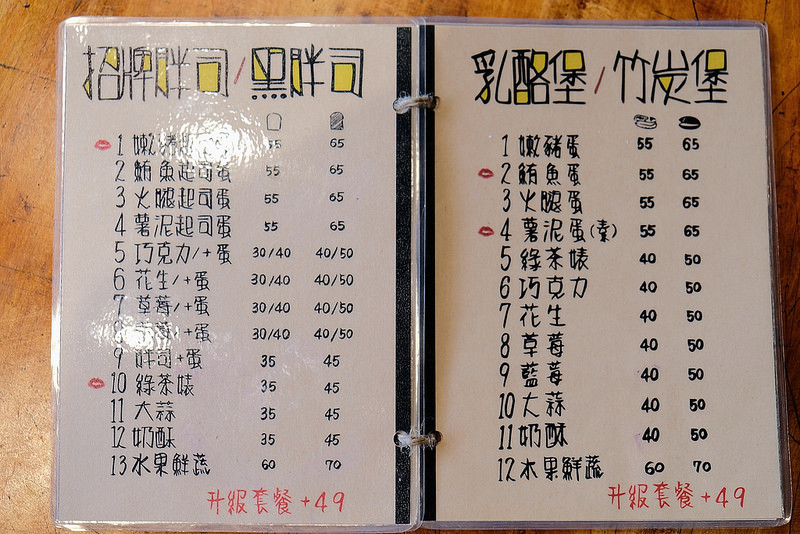 招牌胖司/黑胖司
1 嫩豬 55 65
2 鮪魚起司蛋 55 65
3 火腿起司蛋 55 65
4 薯泥起司蛋 55 65
5 巧克力/+蛋 30/40 40/50
6 花生/+蛋 30/40 40/50
7 草莓/+蛋 30/40 40/50
8 莓/+蛋 30/40 40/50
9 胖司+蛋 35 45
10 綠茶婊 35 45
11 大蒜 35 45
12 奶酥 35 45
13 水果鮮蔬 60 70
升級套餐+49
乳酪堡/竹炭堡
1 嫩豬蛋 55 65
2 鮪魚蛋 55 65
3 火腿蛋 55 65
4 薯泥蛋(素) 55 65
5 綠茶婊 40 50
6 巧克力 40 50
7 花生 40 50
8 草莓 40 50
9 藍莓 40 50
10 大蒜 40 50
11 奶酥 40 50
12 水果鮮蔬 60 70
升級套餐+49